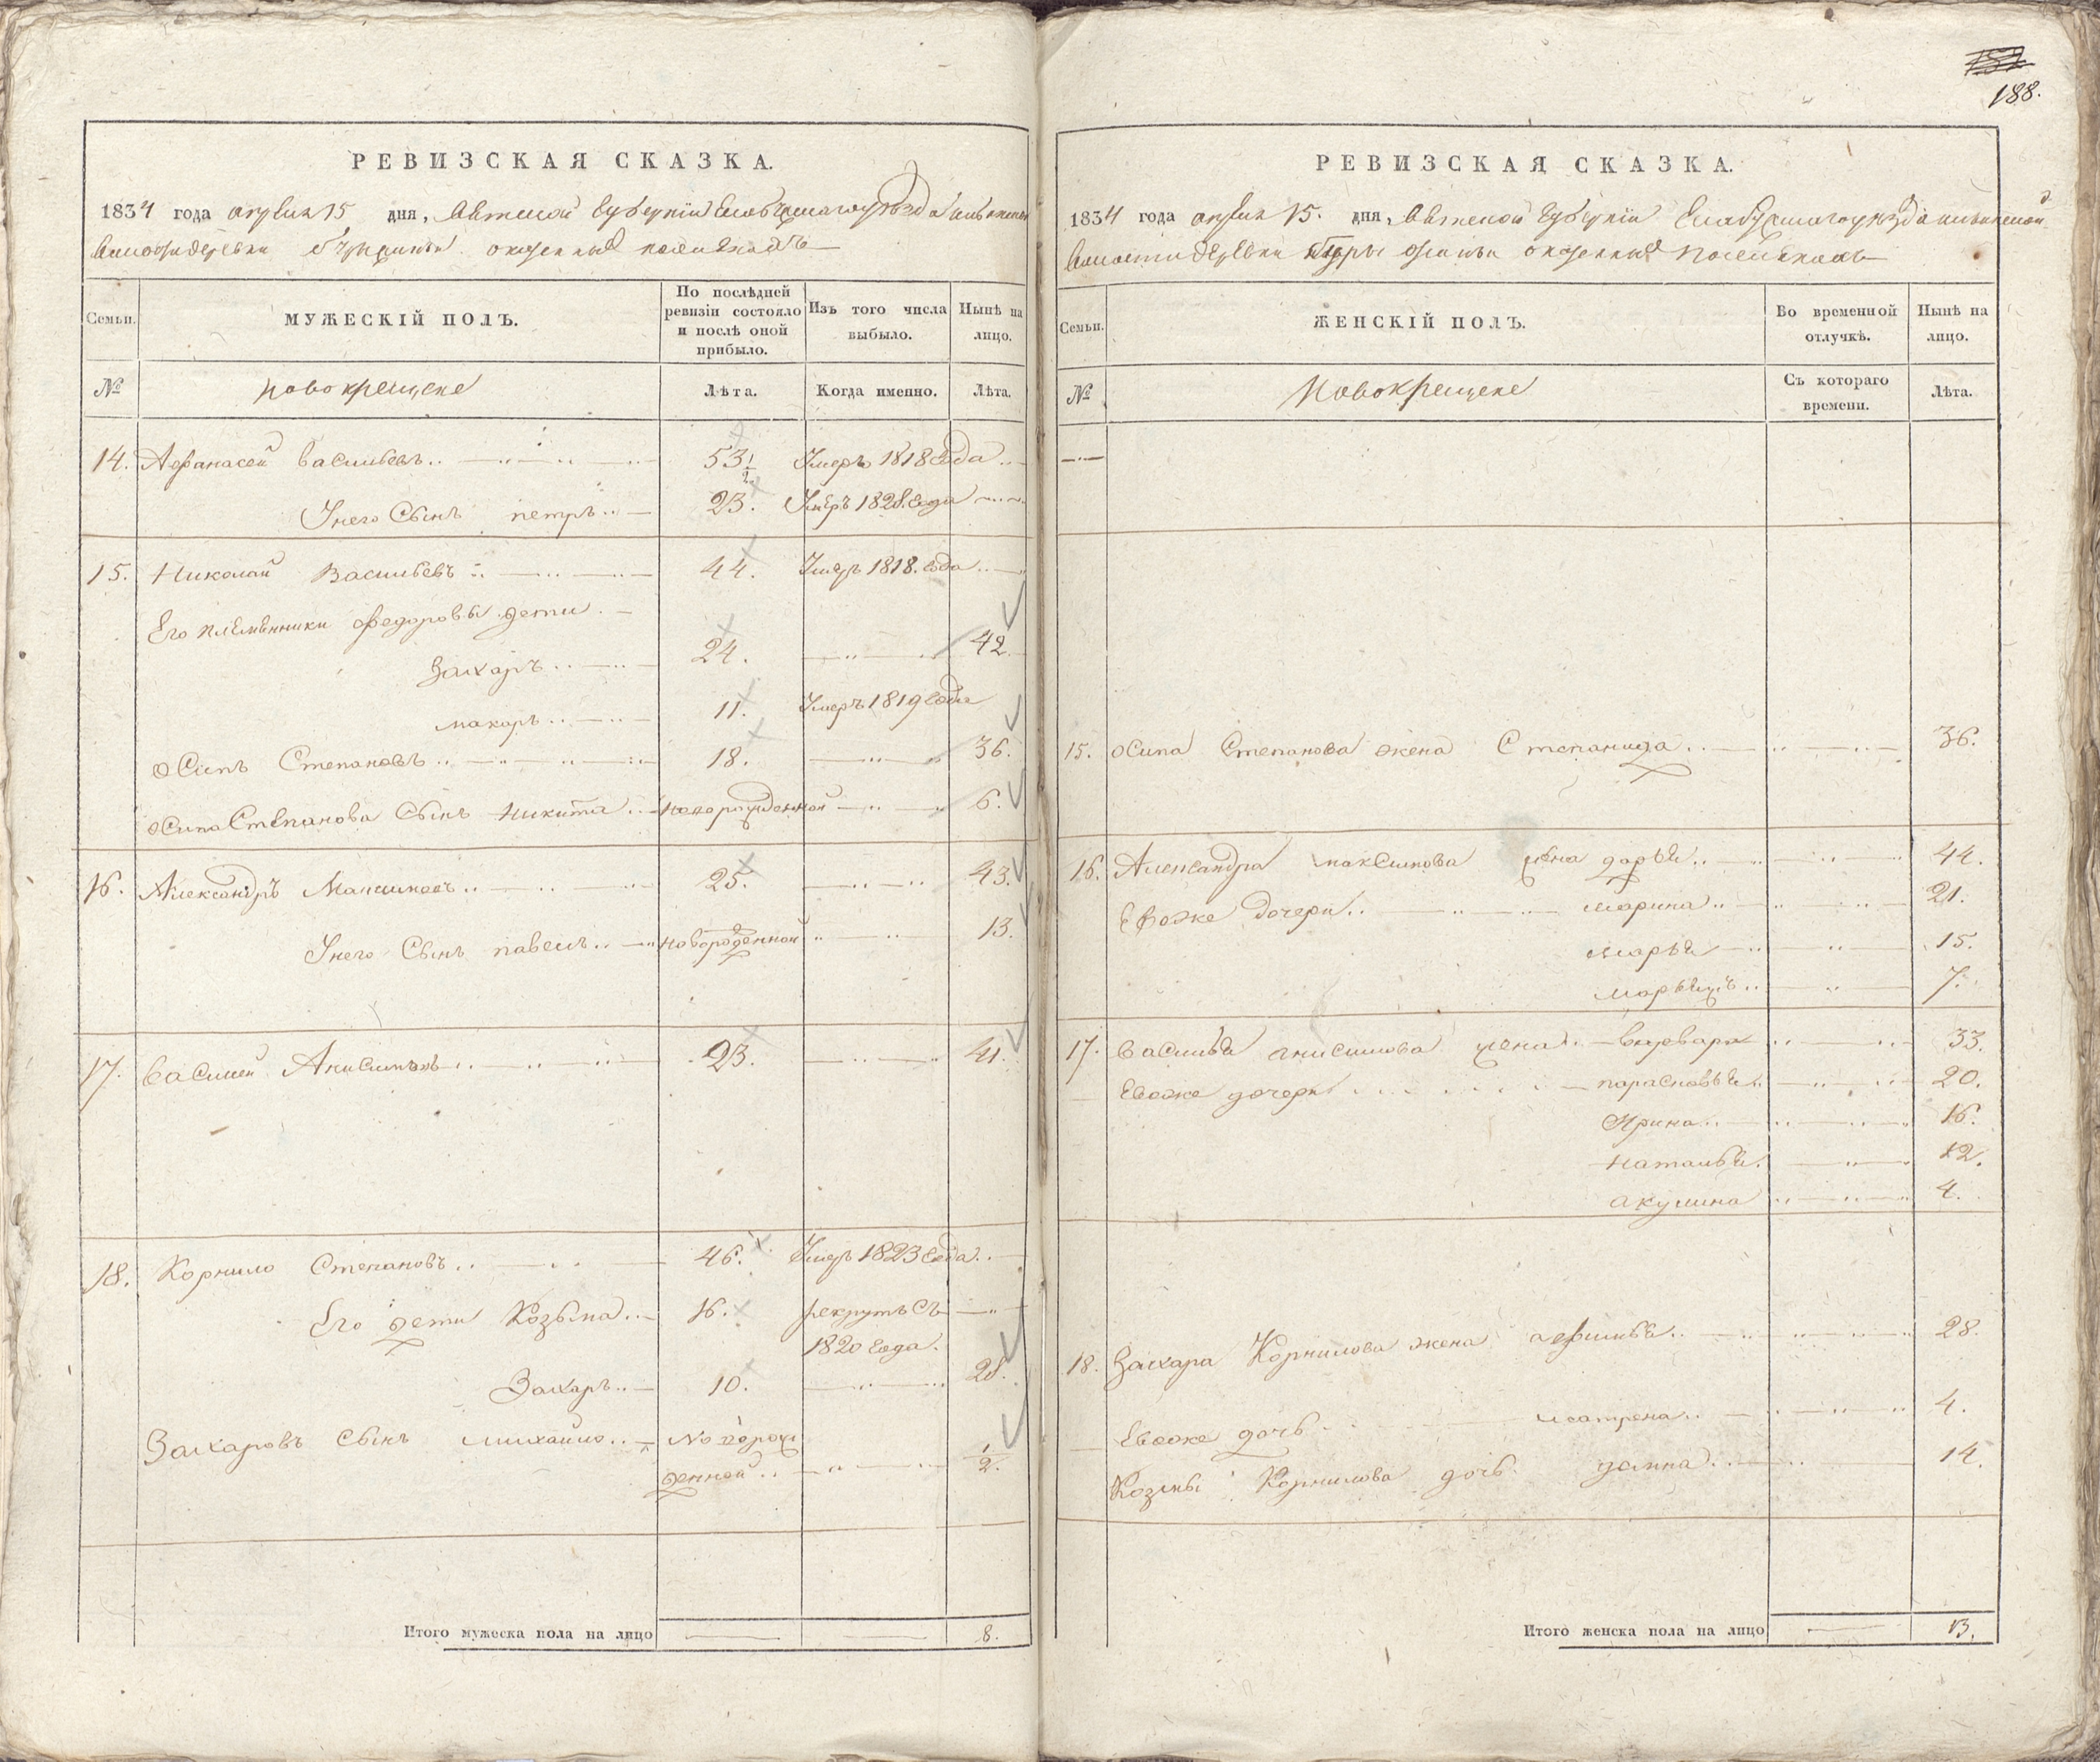 188.
РЕВИЗСКАЯ СКАЗКА.
1834 года апреля 15 дня, Вятской Губернии Елабужскаго уезда
волости деревни
Семьи.
МУЖЕСКІЙ ПОЛЪ.
По послѣдней ревизіи состояло и послѣ оной прибыло.
Изъ того числа выбыло.
Нынѣ на лицо.
№
новокрещене
Лѣта.
Когда именно.
Лѣта.
14. Афанасей Васильевъ 53 1/2 Умеръ 1818 года
Унего Сынъ петръ 23. Умеръ 1828. года
15. Николай Васильевъ 44. Умеръ 1818. года
Его племенники федоровы дети
Захаръ 24. 42
макаръ 11. Умеръ 1819 года
осипъ Степановъ 18. 36.
осипа Степанова Сынъ никита новорожденной 6.
16. Александръ Максимовъ 25. 43.
Унего Сынъ павелъ новорожденной 13.
17. Василей Анисимовъ 23. 41.
18. Корнило Степановъ 46. Умеръ 1823 года
Его дети Козьма 16. рекрутъ Съ
1820 года.
Захаръ 10. 28.
Захаровъ Сынъ михайло новорож
денной 1/2.
Итого мужеска пола на лицо 8.
РЕВИЗСКАЯ СКАЗКА.
1834 года апреля 15. дня, Вятской Губернии Елабужскаго уезда
волости деревни
Семьи.
ЖЕНСКІЙ ПОЛЪ.
Во временной отлучкѣ.
Нынѣ на лицо.
№
Новокрещене
Съ котораго времени.
Лѣта.
15. осипа Степанова жена Степанида 36.
16. Александра максимова жена дарья 44.
Евоже дочери марина 21.
марья 15.
7.
17. Василья анисимова жена варвара 33.
Евоже дочери парасковья 20.
Ирина 16.
наталья 12.
акулина 4.
18. Захара Корнилова жена 28.
Евоже дочь матрена 4.
Козмы Корнилова дочь домна 14.
Итого женска пола на лицо 13.